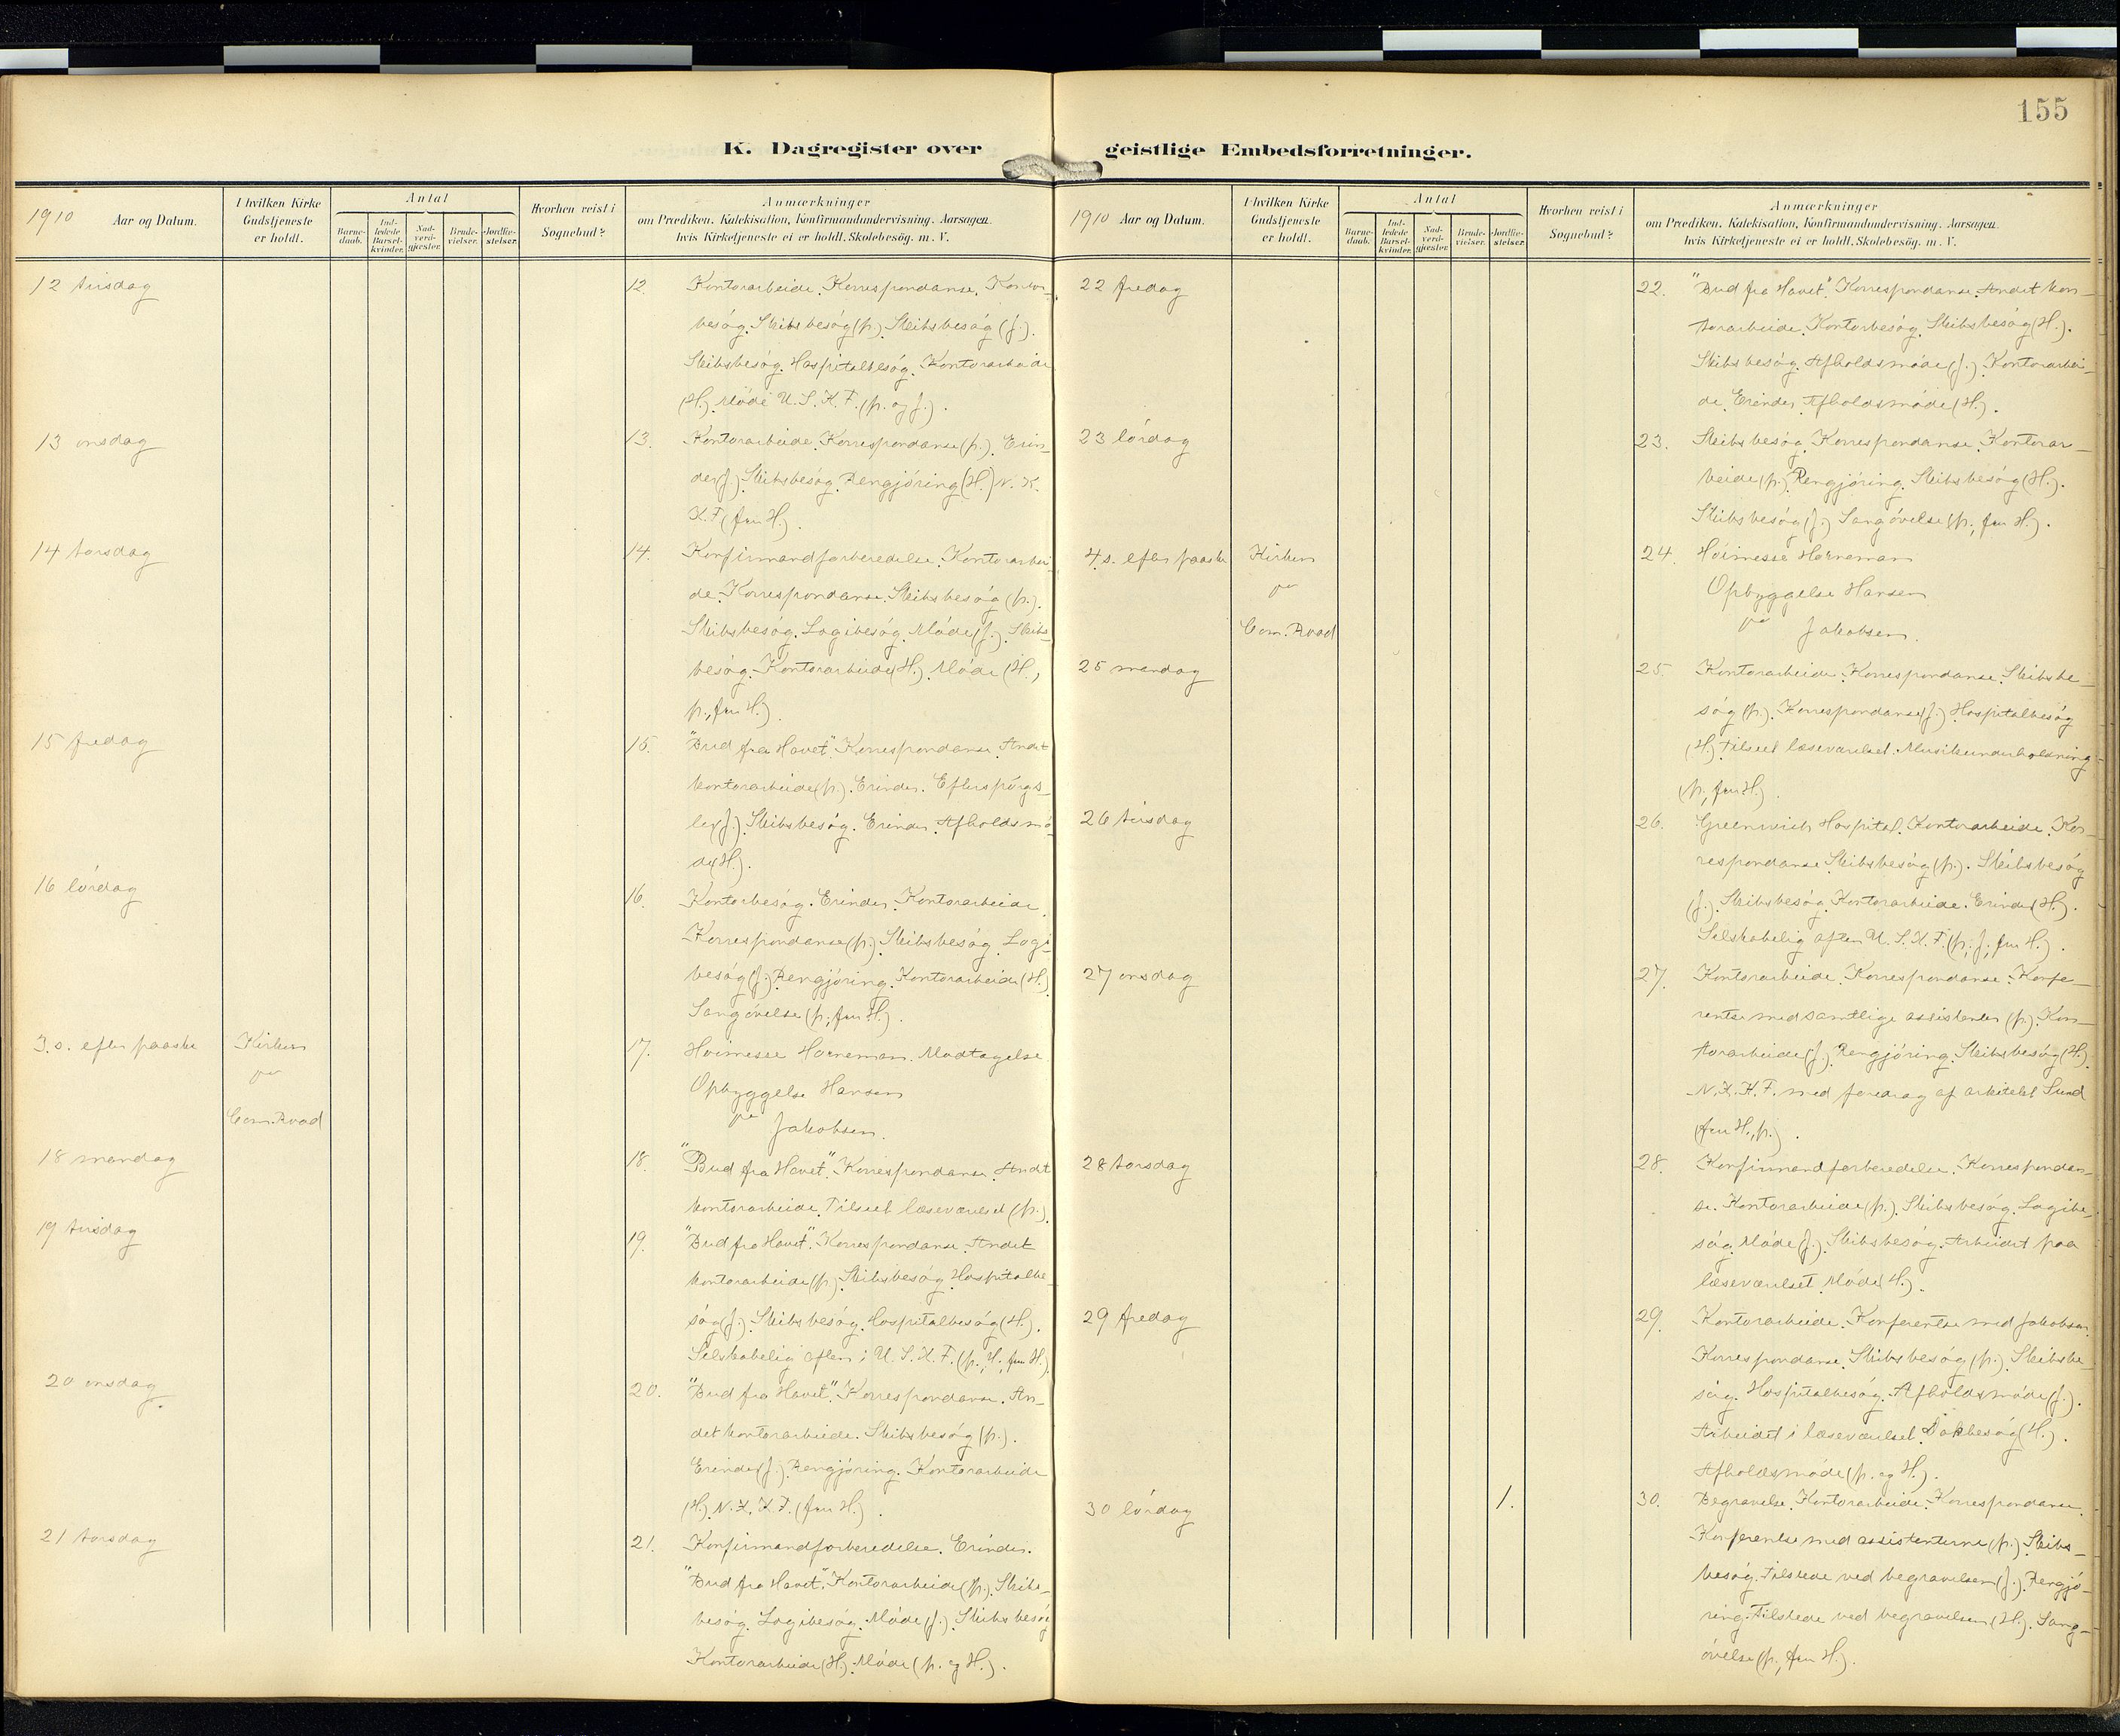 155
K. Dagregister over geistlige Embedsforretninger.
1910 Aar og Datum.
I hvilken Kirke Gudstjeneste er holdt.
Antal
Barnedaab.
Indledede Barselkvinder.
Nadverdgjæster.
Brudevielser.
Jordfæstelser.
Hvorhen reist i Sognebud?
Anmærkninger
om Prædiken, Katekisation, Konfirmandundervisning, Aarsagen
hvis Kirketjeneste ei er holdt, Skolebesög, m. V.
12 tirsdag
12. Kontorarbeide. Korrespondanse. Kontor-
besóg. Skibsbesóg (p.). Skibsbesóg (J.).
Skibsbesóg. Hospitalbesóg. Kontorarbeide
(H.). Móde U.S.K.F. (p. og J.).
13 onsdag
13. Kontorarbeide. Korrespondanse (p.). Erin-
der (J.). Skibsbesóg. Rengjóring (H.) N.K.
K.F (fru H.).
14 torsdag
14. Konfirmandforberedelse. Kontorarbei-
de. Korrespondanse. Skibsbesóg (p.).
Skibsbesóg. Logibesóg. Móde (J.). Skibs-
besóg. Kontorarbeide (H.). Móde (H.,
p., fru H.).
15 fredag
15. "Bud fra Havet". Korrespondanse. Andet
kontorarbeide (p.). Erinder. Efterspórgs-
ler (J.). Skibsbesóg. Erinder. Afholdsmó-
de (H.).
16 lórdag
16. Kontorbesóg. Erinder. Kontorarbeide.
Korrespondanse (p.). Skibsbesóg. Logi-
besóg (J.). Rengjóring. Kontorarbeide (H.).
Sangóvelse (p., fru H.).
3. s. efter paaske
Kirken
Com. Road
17. Hóimesse Horneman. Modtagelse
Opbyggelse Hansen
Jakobsen.
18 mandag
18. "Bud fra Havet". Korrespondanse. Andt
kontorarbeide. Tilseet læseværelset (p.).
19 tirsdag
19. "Bud fra Havet". Korrespondanse. Andet
kontorarbeide (p.). Skibsbesóg. Hospitalbe-
sóg (J.). Skibsbesóg. Hospitalbesóg (H.).
Selskabelig aften i U.S.K.F. (p., H., fru H.).
20 onsdag
20. "Bud fra Havet". Korrespondanse. An-
det kontorarbeide. Skibsbesóg (p.).
Erinder (J.). Rengjóring. Kontorarbeide
(H.). N.K.K.F. (fru H.).
21 torsdag
21. Konfirmandforberedelse. Erinder.
"Bud fra Havet". Kontorarbeide (p.). Skibs-
besóg. Logibesóg. Móde (J.). Skibsbesóg
Kontorarbeide (H.). Móde (p. og H.).
1910 Aar og Datum.
I hvilken Kirke Gudstjeneste er holdt.
Antal
Barnedaab.
Indledede Barselkvinder.
Nadverdgjæster.
Brudevielser.
Jordfæstelser.
Hvorhen reist i Sognebud?
Anmærkninger
om Prædiken, Katekisation, Konfirmandundervisning, Aarsagen
hvis Kirketjeneste ei er holdt, Skolebesög, m. V.
22 fredag
22. "Bud fra Havet". Korrespondanse. Andet kon-
torarbeide. Kontorbesóg. Skibsbesóg (H.).
Skibsbesóg. Afholdsmóde (J.). Kontorarbei-
de. Erinder. Afholdsmóde (H.).
23 lórdag
23. Skibsbesóg. Korrespondanse. Kontorar-
beide (p.). Rengjóring. Skibsbesóg (H.).
Skibsbesóg (J.). Sangóvelse (p., fru H.).
4. s. efter paaske
Kirken
Com. Road
24. Hóimesse Horneman
Opbyggelse Hansen
Jakobsen.
25 mandag
25. Kontorarbeide. Korrespondanse. Skibsbe-
sóg (p.). Korrespondanse (J.). Hospitalbesóg
(H.). Tilseet læseværelset. Musikunderholdning
(p., fru H.).
26 tirsdag
26. Greenwich Hospital. Kontorarbeide. Kor-
respondanse. Skibsbesóg (p.). Skibsbesóg
(J.). Skibsbesóg. Kontorarbeide. Erinder (H.).
Selskabelig aften U.S.K.F. (p., J., fru H.).
27 onsdag
27. Kontorarbeide. Korrespondanse. Konfe-
rentse med samtlige assistenter (p.). Kon-
torarbeide (J.). Rengjóring. Skibsbesóg (H.).
N.K.K.F. med foredrag af arkitekt Sund
(fru H., p.).
28 torsdag
28. Konfirmandforberedelse. Korrespondan-
se. Kontorarbeide (p.). Skibsbesóg. Logibe-
sóg. Móde (J.). Skibsbesóg. Arbeidet paa
læseværelset. Móde (H.).
29 fredag
29. Kontorarbeide. Konferentse med Jakobsen.
Korrespondanse. Skibsbesóg (p.). Skibsbe-
sóg. Hospitalbesóg. Afholdsmóde (J.).
Arbeidet i læseværelset. Dokbesóg (H.).
Afholdsmóde (p. og H.).
30 lórdag
1.
30. Begravelse. Kontorarbeide. Korrespondanse.
Konferentse med assistenterne (p.). Skibs-
besóg. Tilstede ved begravelsen (J.). Rengjó-
ring. Tilstede ved begravelsen (H.). Sang-
óvelse (p., fru H.).